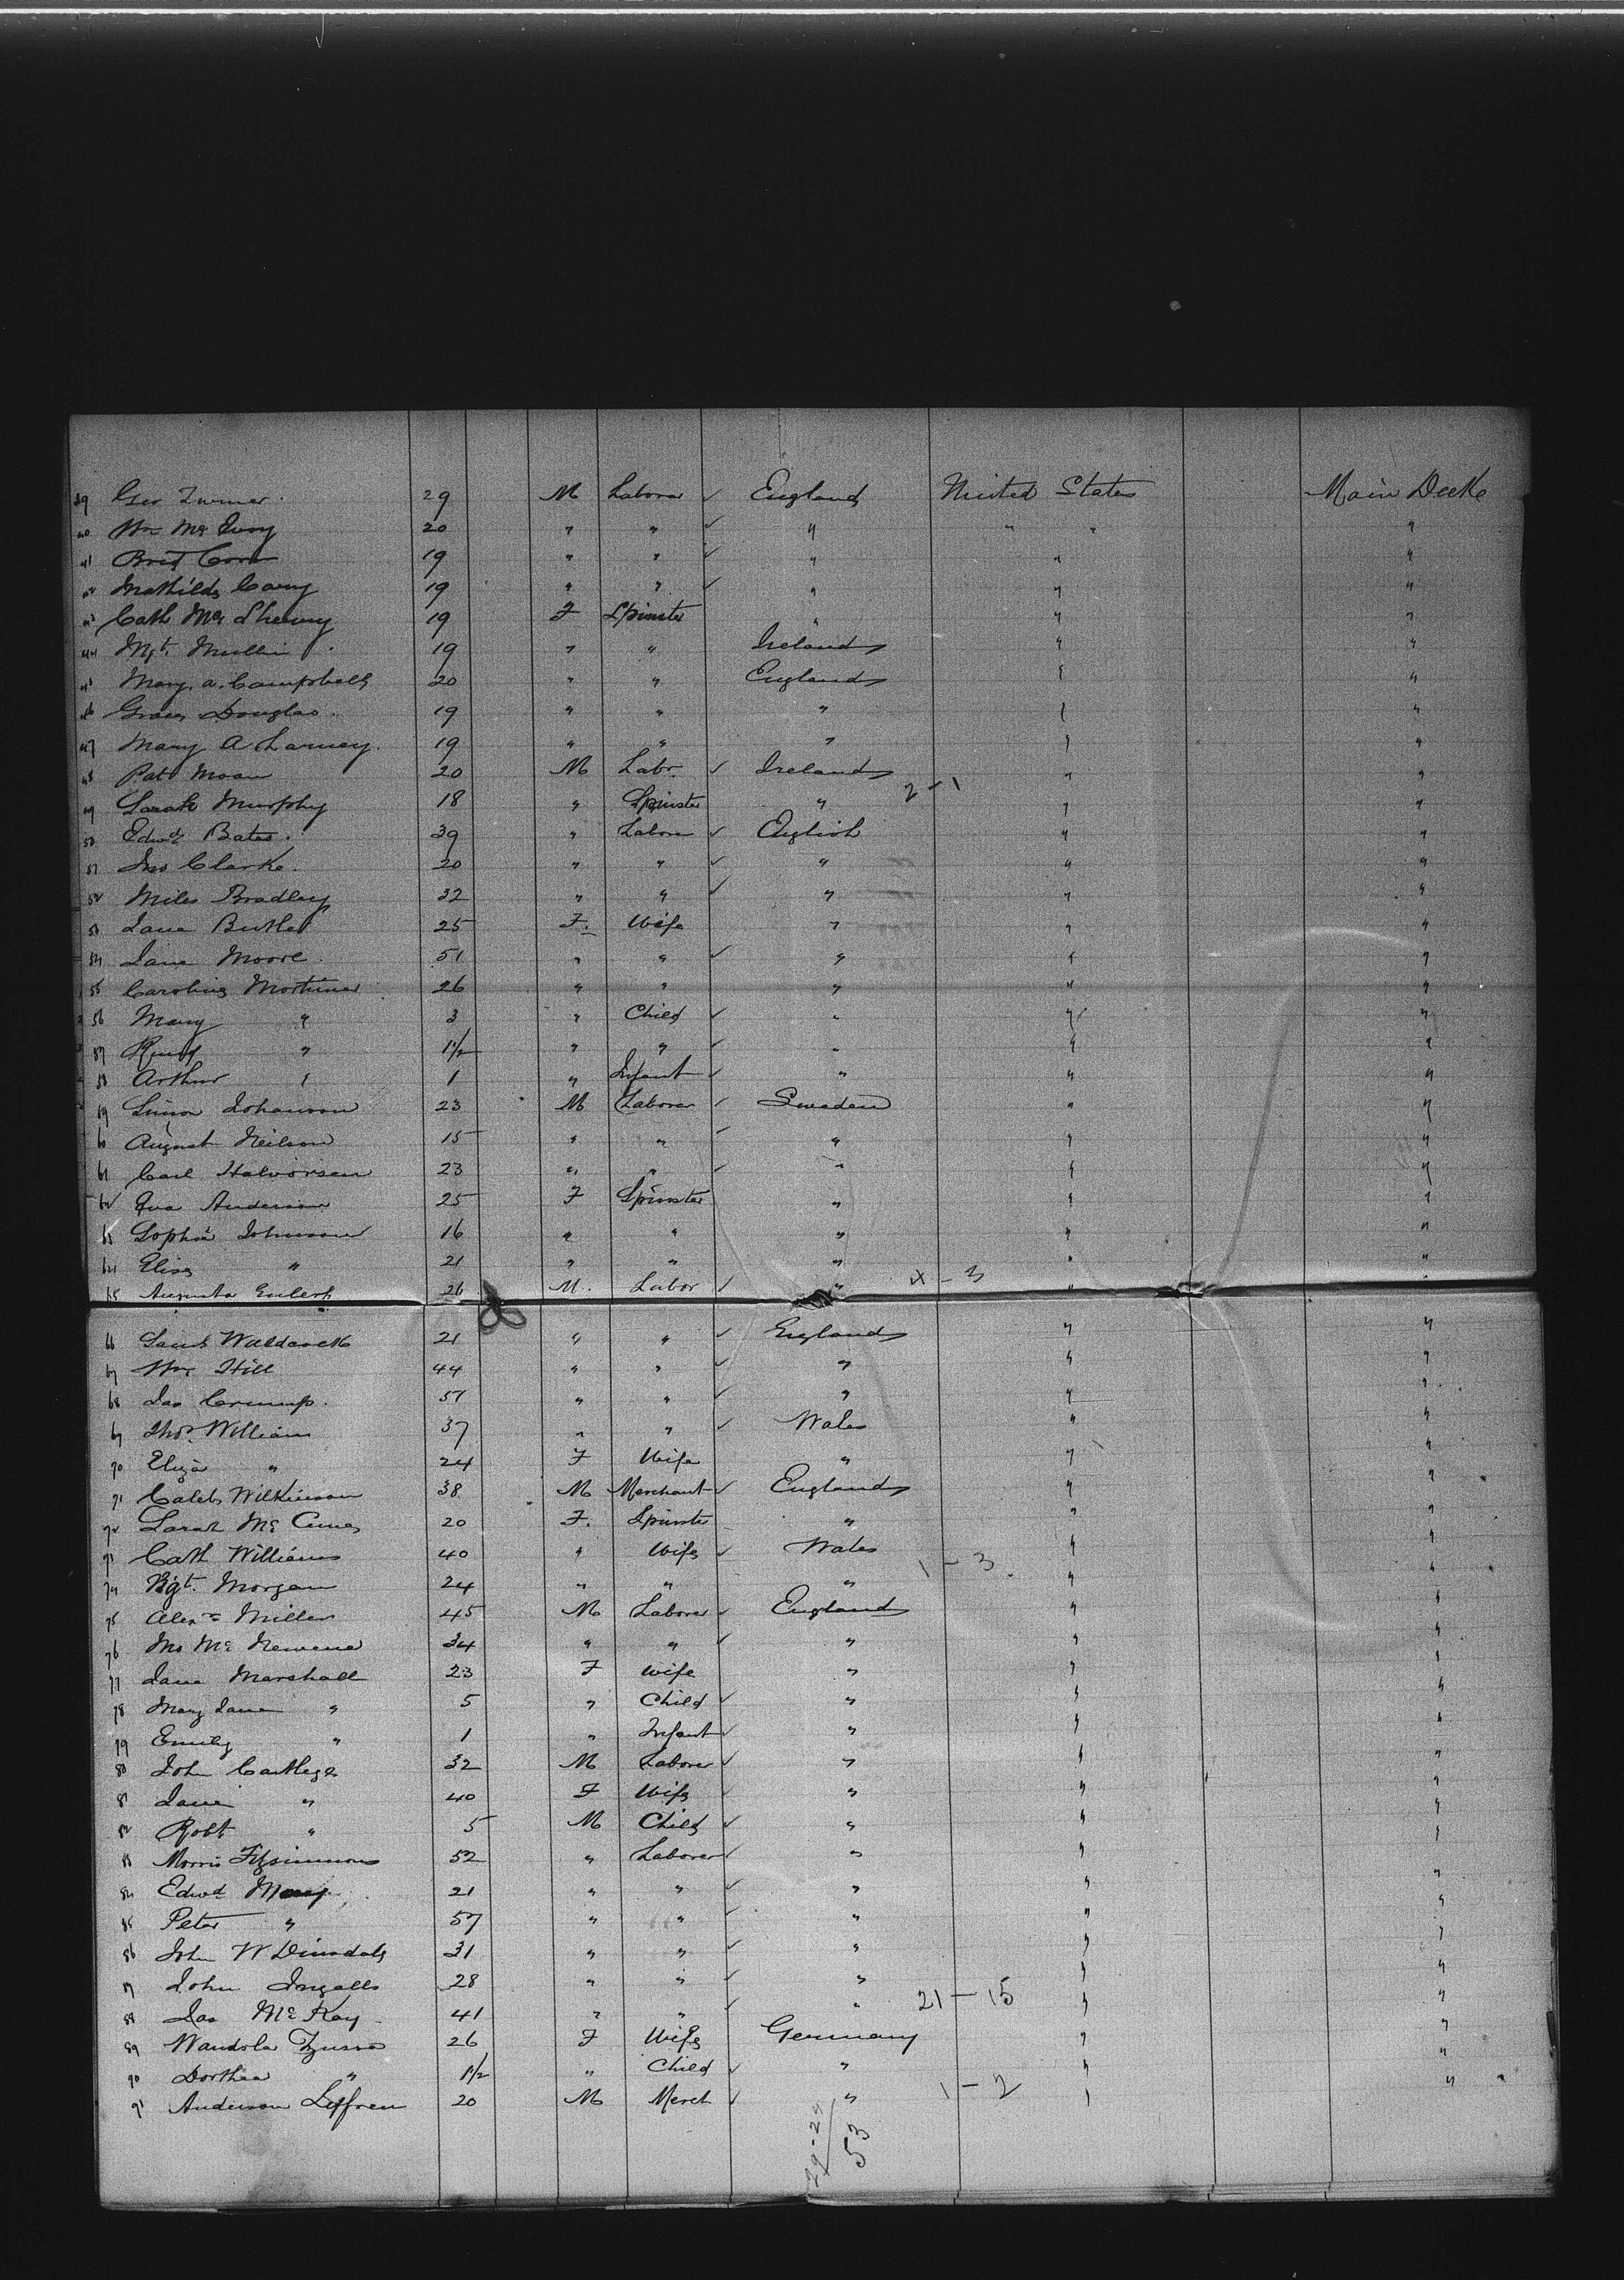 39 Geo Turner. 29 M Laborer ✓ England United States Main Decke
40 Wm Mc Evoy 20 " " ✓ " " " "
41 19 " " ✓ " " "
42 Mathilda Cary 19 " " ✓ " " "
43 Cath Mc 19 F Spinster " " "
44 Mgt. Mullin 19 " " Ireland " "
45 Mary A. Campbell 20 " " England " "
46 Grace Douglas. 19 " " " " "
47 Mary A Larney. 19 " " " " "
48 Patk Moan 20 M Labr. ✓ Ireland " "
49 Sarah Murphy 18 " Spinster " 2 - 1 " "
50 Edwd Bates. 39 " Laborer ✓ English " "
51 Jno Clarke. 20 " " ✓ " " "
52 Miles Bradley 32 " " ✓ " " "
53 Jane Butler 25 F. Wife " " "
54 Jane Moore. 51 " " ✓ " " "
55 Caroline Mortimer 26 " " " " "
56 Mary " 3 " Child ✓ " " "
57 " 1½ " " ✓ " " "
58 Arthur " 1 " Infant ✓ " " "
59 Johanson 23 M Laborer ✓ Sweden " "
60 August Neilson 15 " " ✓ " " "
61 Carl Halvorsen 23 " " ✓ " " "
62 Eva Anderson 25 F Spinster " " "
63 Sophia Johnson 16 " " " " "
64 Elisa " 21 " " " " "
65 Augusta 26 M. Labor ✓ " 4 - 3 " "
66 21 " " ✓ England " "
67 Wm Hill 44 " " ✓ " " "
68 Jas Crump. 51 " " ✓ " " "
69 Thos. William 37 " " ✓ Wales " "
70 Eliza " 24 F Wife " " "
71 Caleb Wilkinson 38 M Merchant ✓ England " "
72 Sarah Mc 20 F. Spinster " " "
73 Cath Williams 40 " Wife ✓ Wales " "
74 Morgan 24 " " " 1 - 3 " "
75 Alexr Miller 45 M Laborer ✓ England " "
76 Mc 34 " " ✓ " " "
77 Jane Marshall 23 F Wife " " "
78 Mary Jane " 5 " Child ✓ " " "
79 Emily " 1 " Infant ✓ " " "
80 John Cartlege 32 M Laborer ✓ " " "
81 Jane " 40 F Wife ✓ " " "
82 Robt " 5 M Child ✓ " " "
83 Morris Fitzsimmons 52 " Laborer ✓ " " "
84 Edwd 21 " " ✓ " " "
85 Peter " 57 " " ✓ " " "
86 John W Dinsdale 31 " " ✓ " " "
87 John Ingalls 28 " " ✓ " " "
88 Jas Mc Kay 41 " " ✓ " 21 - 15 " "
89 26 F Wife Germany " "
90 Dorthea " 1½ " Child ✓ " " "
91 Anderson 20 M Merch ✓ " 1 - 2 " "
29 - 24
53